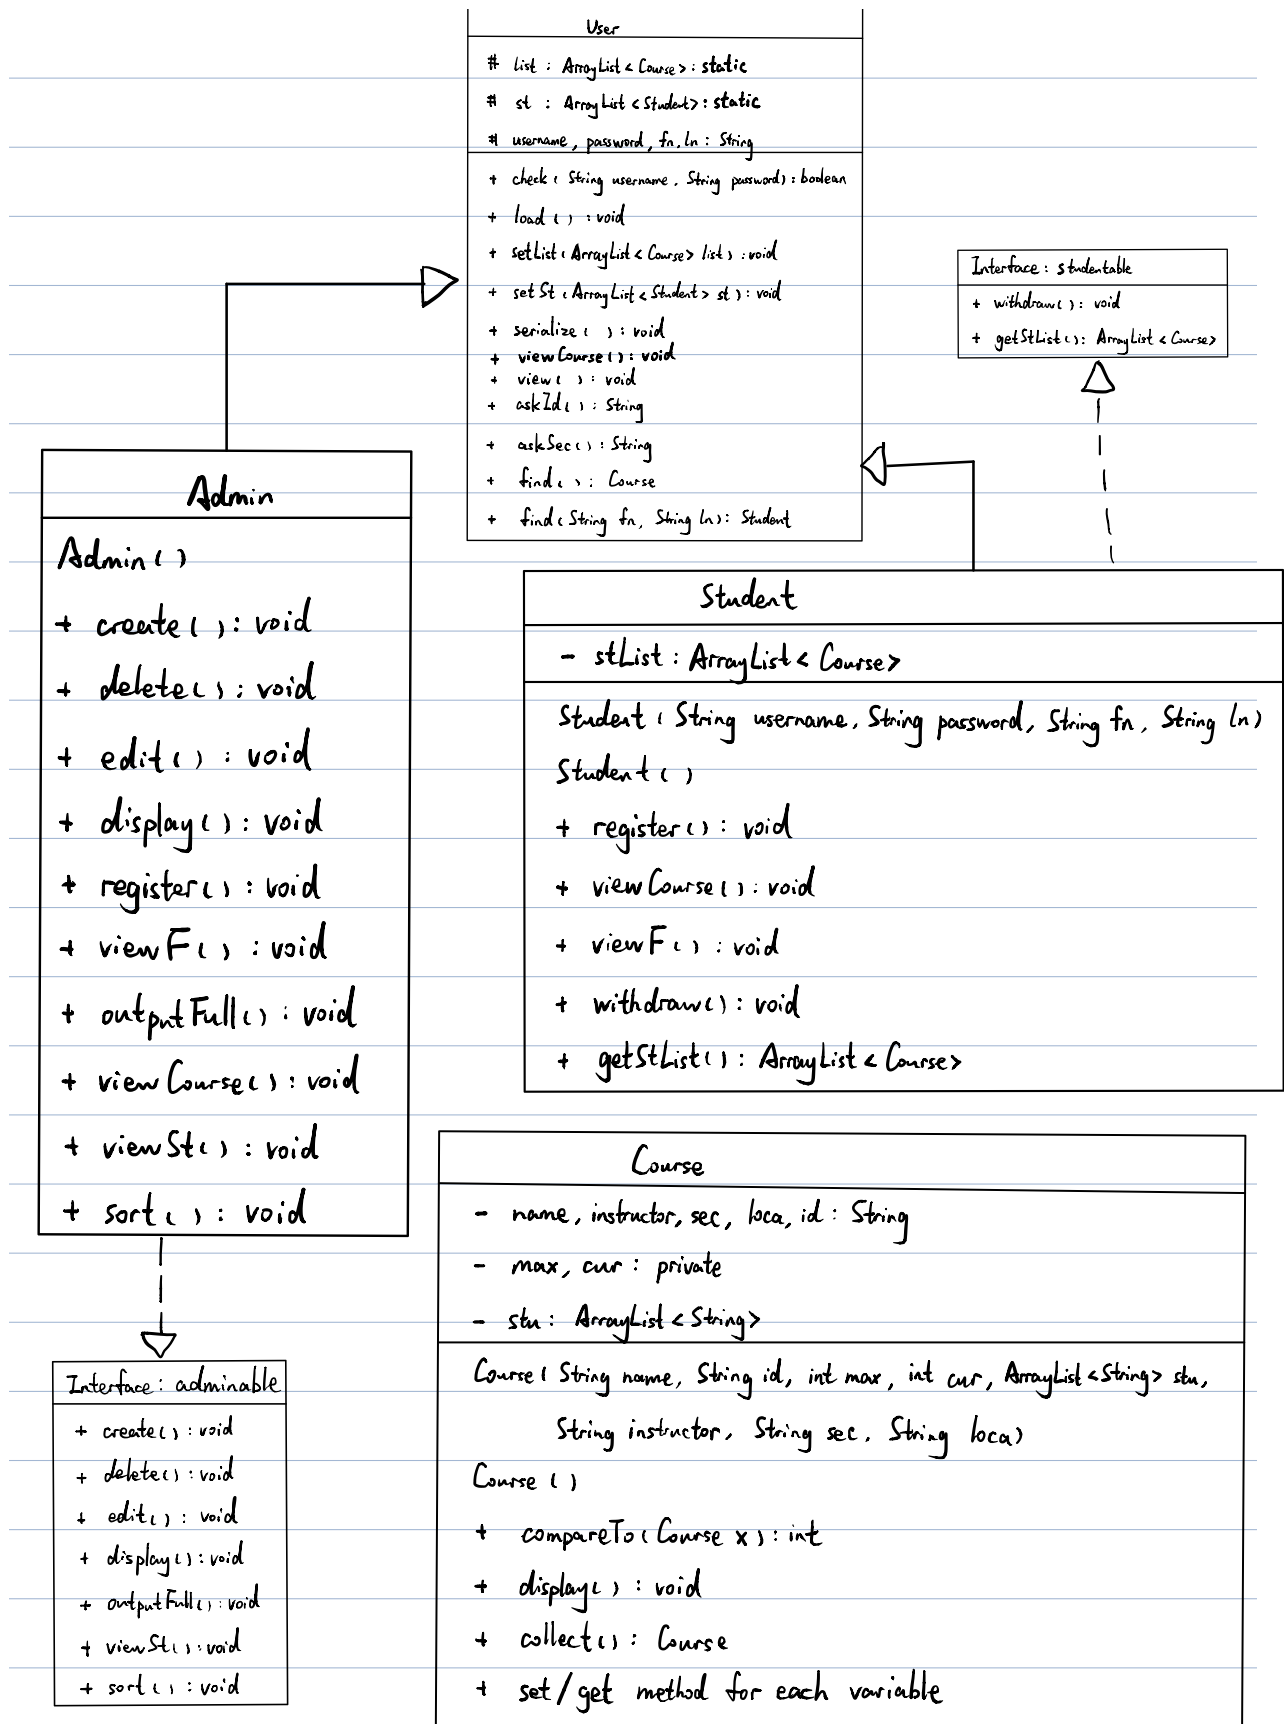 User
# list : ArrayList < Course> : static
# st : ArrayList < Student> : static
# username, password, fn, ln : String
+ check ( String username, String password) : boolean
+ load ( ) : void
+ setList ( ArrayList < Course> list ) : void
+ setSt ( ArrayList < Student> st ) : void
+ serialize ( ) : void
+ viewCourse ( ) : void
+ view ( ) : void
+ askId ( ) : String
+ askSec ( ) : String
+ find ( ) : Course
+ find ( String fn, String ln ) : Student
Interface : studentable
+ withdraw ( ) : void
+ getStList ( ) : ArrayList < Course>
Admin
Admin ( )
+ create ( ) : void
+ delete ( ) : void
+ edit ( ) : void
+ display ( ) : void
+ register ( ) : void
+ viewF ( ) : void
+ outputFull ( ) : void
+ viewCourse ( ) : void
+ viewSt ( ) : void
+ sort ( ) : void
Student
- stList : ArrayList < Course>
Student ( String username, String password, String fn, String ln )
Student ( )
+ register ( ) : void
+ viewCourse ( ) : void
+ viewF ( ) : void
+ withdraw ( ) : void
+ getStList ( ) : ArrayList < Course>
Interface : adminable
+ create ( ) : void
+ delete ( ) : void
+ edit ( ) : void
+ display ( ) : void
+ outputFull ( ) : void
+ viewSt ( ) : void
+ sort ( ) : void
Course
- name, instructor, sec, loca, id : String
- max, cur : private
- stu : ArrayList < String>
Course ( String name, String id, int max, int cur, ArrayList <String> stu,
String instructor, String sec, String loca )
Course ( )
+ compareTo ( Course x ) : int
+ display ( ) : void
+ collect ( ) : Course
+ set / get method for each variable